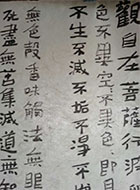 觀自在菩薩行深
色不異空空不異色
不生不滅不垢不淨不
無色聲香味觸法無眼
死盡無苦集滅道無智